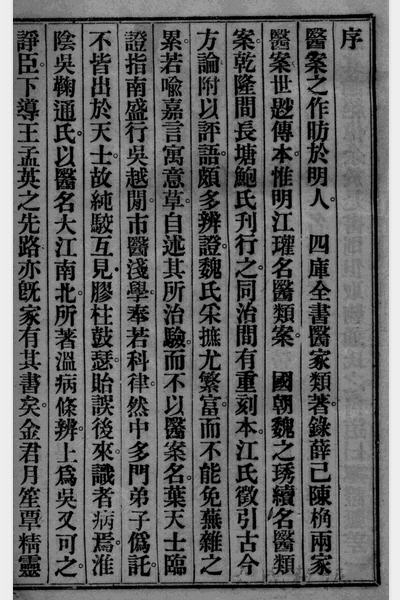 序
醫案之作昉於明人。　四庫全書醫家類著錄薛己陳桷兩家
醫案世尟傳本惟明江瓘名醫類案　國朝魏之琇續名醫類
案乾隆間長塘鮑氏刊行之同治間有重刻本江氏徵引古今
方論附以評語頗多辨證魏氏采摭尤繁富而不能免蕪雜之
累若喻嘉言寓意草自述其所治驗而不以醫案名葉天士臨
證指南盛行吳越閒市醫淺學奉若科律然中多門弟子僞託
不皆出於天士故純駮互見膠柱鼓瑟貽誤後來識者病焉淮
陰吳鞠通氏以醫名大江南北所著溫病條辨上爲吳又可之
諍臣下導王孟英之先路亦旣家有其書矣金君月笙覃精靈